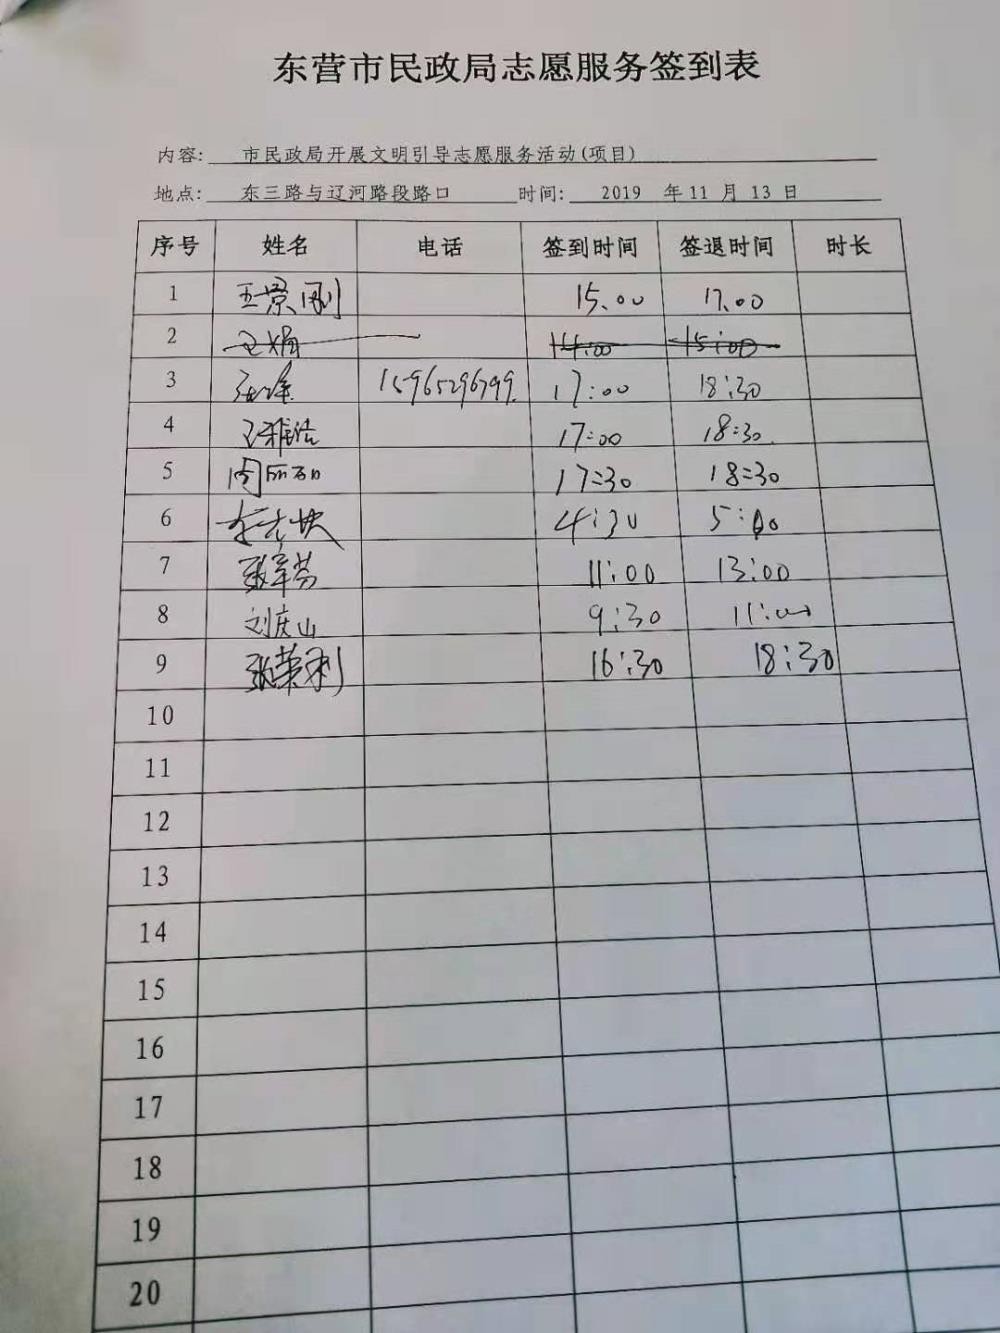 东营市民政局志愿服务签到表
内容: 市民政局开展文明引导志愿服务活动(项目)
地点: 东三路与辽河路段路口 时间: 2019 年 11 月 13 日
序号 姓名 电话 签到时间 签退时间 时长
1 王景刚 15.00 17.00
2 王娟 14:00 15:00
3 15965296799 17:00 18:30
4 王雅洁 17:00 18:30
5 周丽丽 17:30 18:30
6 4:30 5:00
7 张军芳 11:00 13:00
8 刘庆山 9:30 11:00
9 张荣利 16:30 18:30
10
11
12
13
14
15
16
17
18
19
20